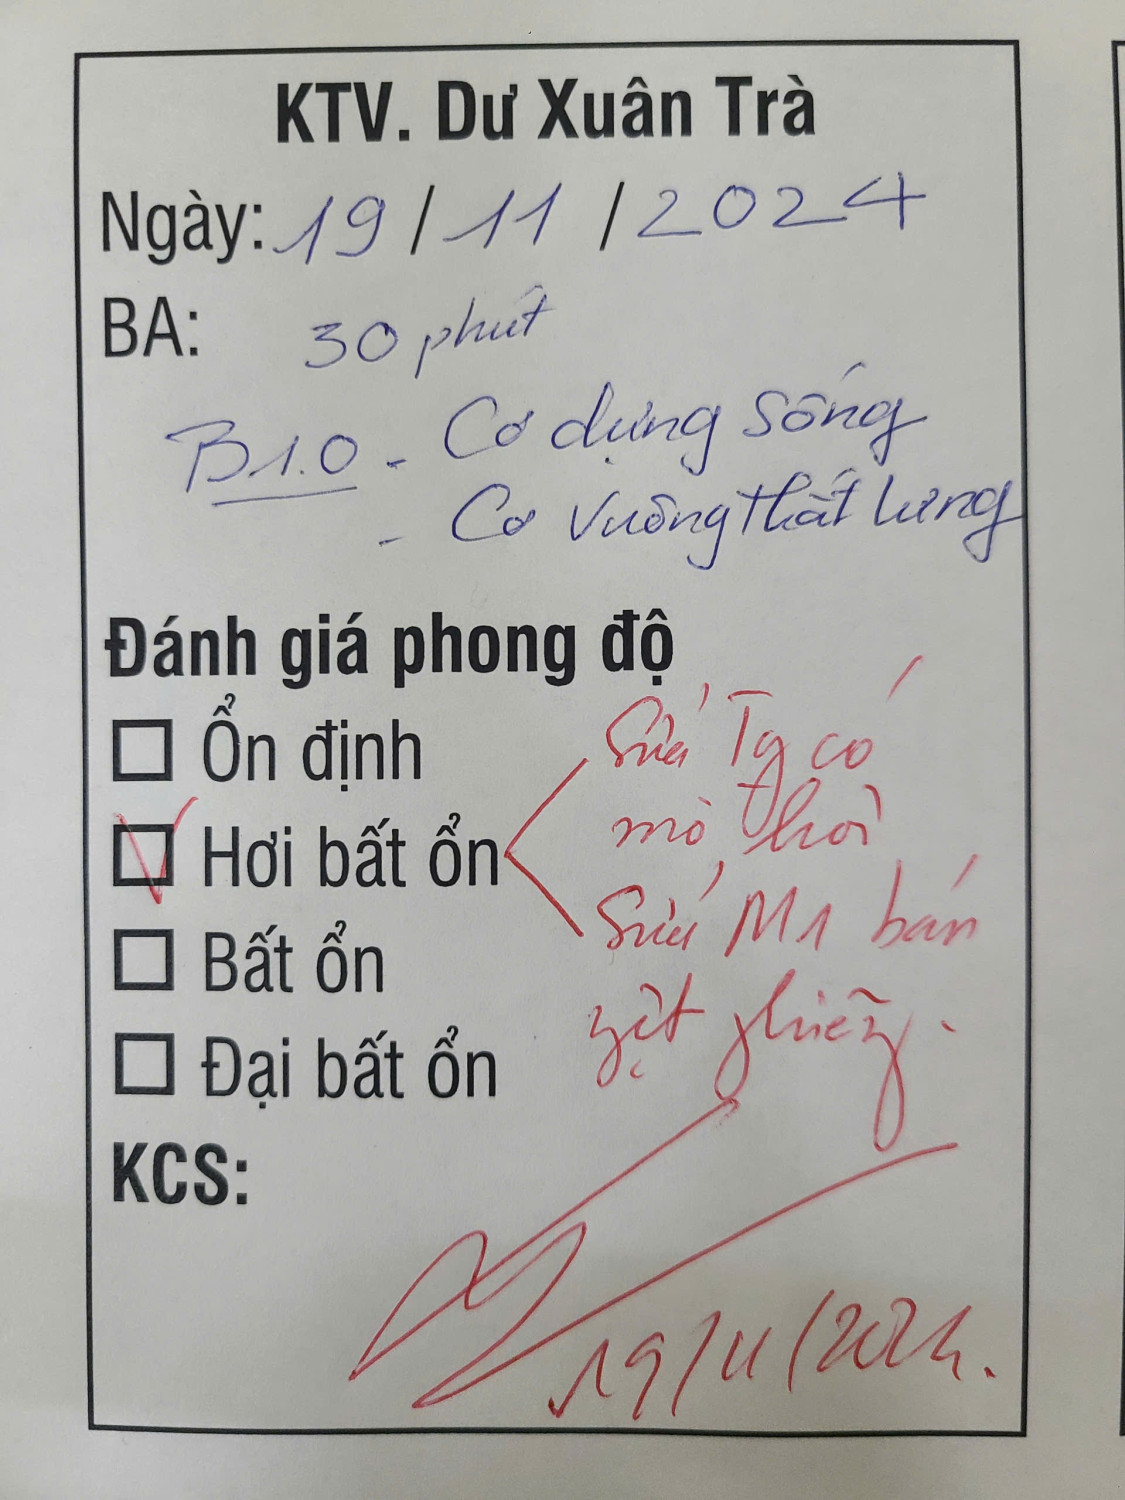 KTV. Dư Xuân Trà
Ngày: 19 / 11 / 2024
BA: 30 phút
B1.0 - Cơ dựng sống
- Cơ vuông thắt lưng
Đánh giá phong độ
Ổn định
Hơi bất ổn
Bất ổn
Đại bất ổn
Sửa Tg có
mò hơi
Sửa M1 bán
KCS:
19/11/2024.